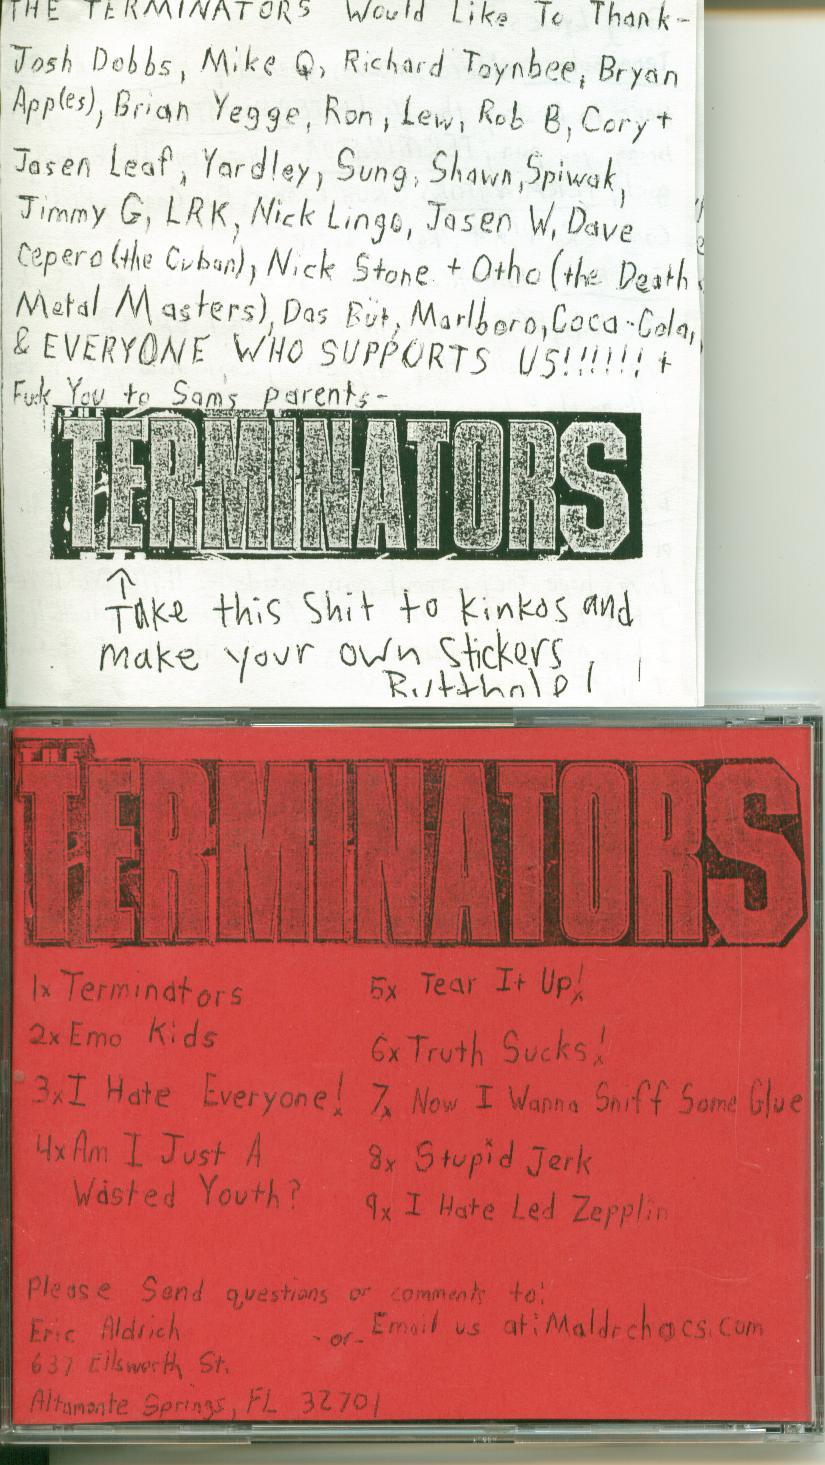 THE TERMINATORS Would Like To Thank-
Josh Dobbs, Mike Q, Richard Toynbee, Bryan
App(les), Brian Yegge, Ron, Lew, Rob B, Cory +
Jasen Leaf, Yardley, Sung, Shawn, Spiwak,
Jimmy G, LRK, Nick Lingo, Jasen W, Dave
Cepero (the Cuban), Nick Stone + Otho (the Death
Metal Masters), Das Büt, Marlboro, Coca-Cola,
& EVERYONE WHO SUPPORTS US!!!!!! +
Fuck You to Sam's parents-
THE
TERMINATORS
Take this Shit to kinkos and
make your own Stickers,
Butthole!
THE
TERMINATORS
1x Terminators
2x Emo Kids
3x I Hate Everyone!
4x Am I Just A
Wasted Youth?
5x Tear It Up!
6x Truth Sucks!
7x Now I Wanna Sniff Some Glue
8x Stupid Jerk
9x I Hate Led Zepplin
Please Send questions or comments to:
Eric Aldrich
637 Ellsworth St.
Altamonte Springs, FL 32701
-or-
Email us at: Maldrch@cs.com